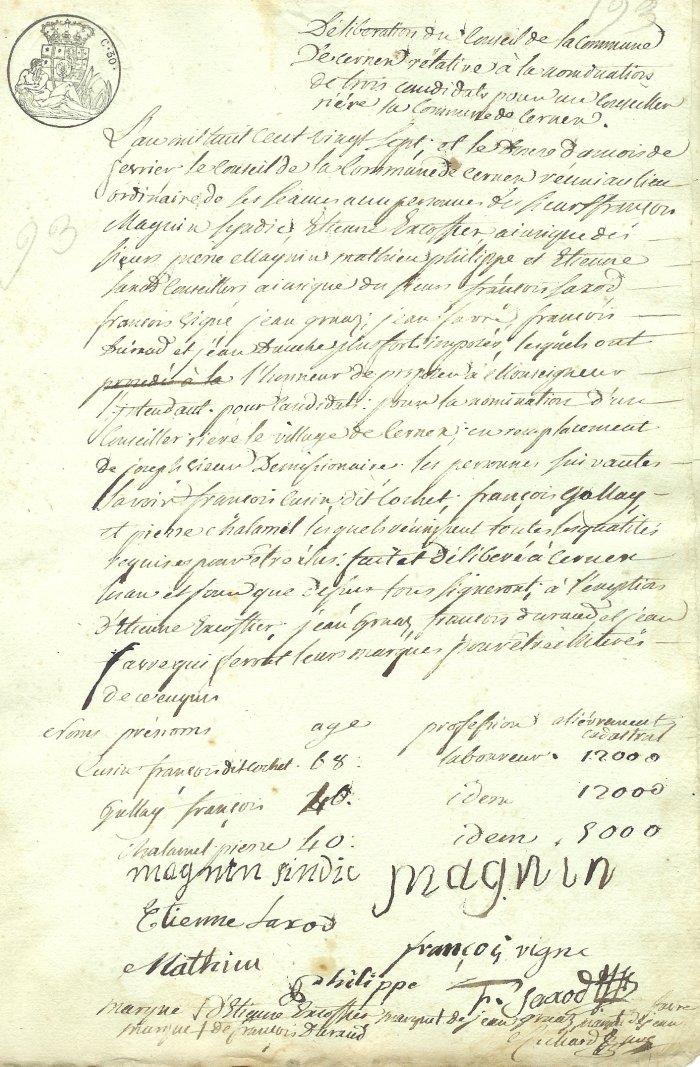 193
C. 50.
Déliberation du Conseil de la commune
De cernex rélative à la nomination
de trois candidats pour un Conseiller
riére la Commune de Cernex.
L'an mil huit Cent vingt sept, et le du mois de
fevrier le Conseil de la Commune de Cernex reuni au lieu
ordinaire de ses séances aux personnes des sieurs françois
Magnin syndic, Etienne Excoffier ainsi que des
sieurs pierre Magnin mathieu philippe et Etienne
Saxod Conseillers ainsi que du sieurs françois Saxod
françois vigne, jean jean favre, françois
Durand et jean plus fort imposés, lesquels ont
procédé à la l'honneur de proposer à Monseigneur
l'intendant pour Candidats pour la nomination d'un
Conseiller riére le village de Cernex, en remplacement
de joseph Demissionaire les personnes suivantes
Savoir françois Cusin dit Cochet, françois Gallay
et pierre Chalamel lesquels réunissent toutes les qualités
requises pour être élus. fait et délibéré à Cernex
l'an et jour que dessus tous signeront, à l'exeption
d'Etienne Excoffier, jean françois durand et jean
favre qui feront leurs marques pour être
de ce enquis
Noms prénoms age profession alièvrement
cadastral
Cusin françois dit Cochet. 68. laboureur. 12000
Gallay françois 46. idem 12000
Chalamel pierre 40. idem. 5000
magnin sindic magnin
Etienne Saxod
Mathieu françois vigne
philippe F. Saxod
marque † d'Etienne Excoffier marque de jean marque de jean favre
marque † de françois Durand
93